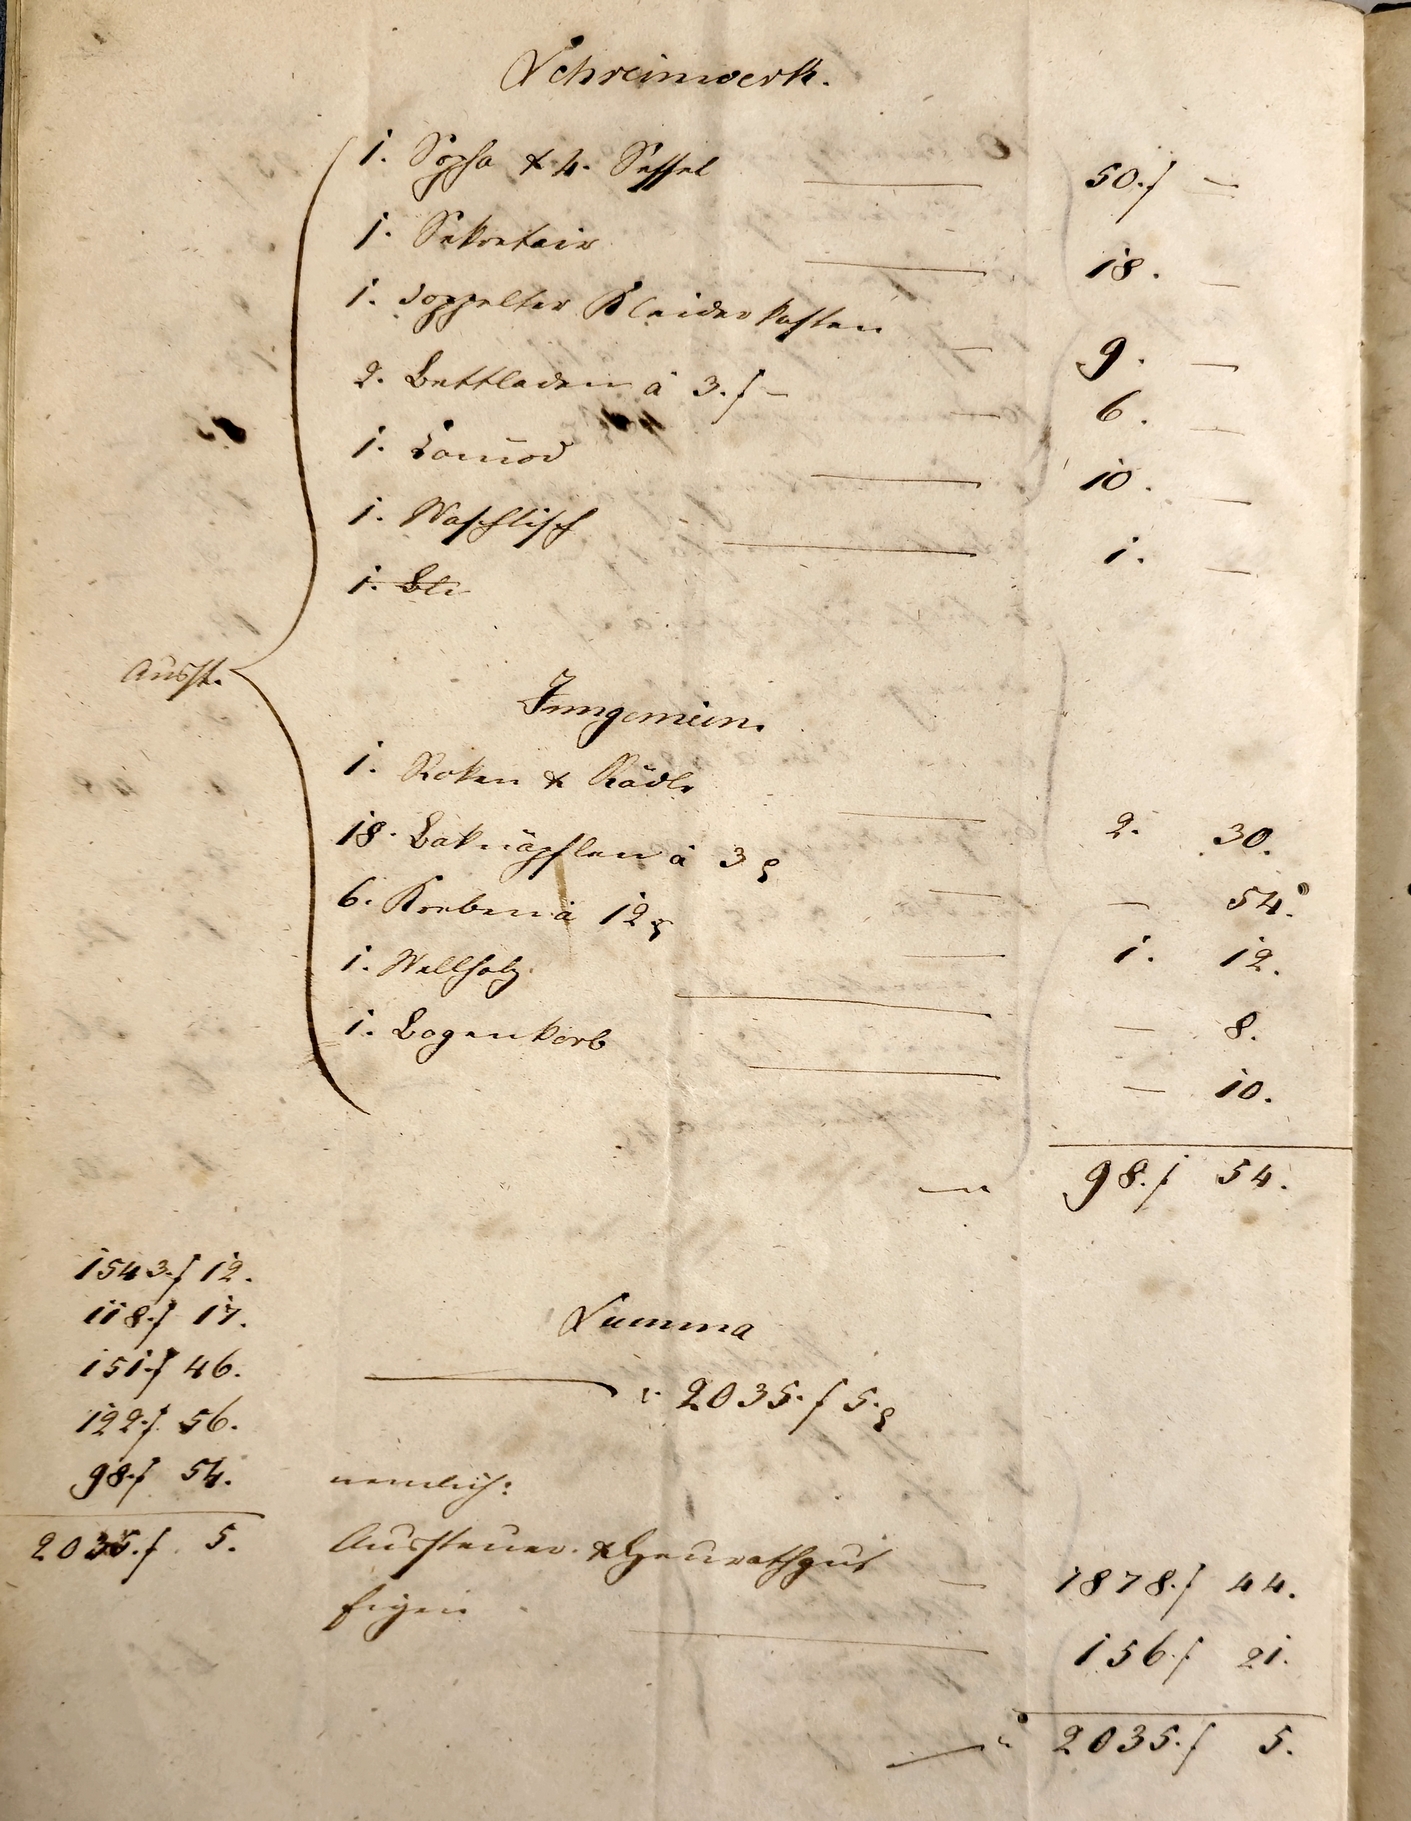 Schreinwerk.
1. Sopha & 4. Sessel — 50.f —
1. Sekretair — 18. —
1. doppelter Kleiderkasten — 9. —
2. Bettladen à 3.f — — 6. —
1. Com̄od — 10. —
1. Waschtisch — 1. —
1. Bt
Ausst.
Inngemein.
1. Roken & Rädle — 2. 30.
18. Baknäpflen à 3 x — — 54.
6. Kreben à 12 x — 1. 12.
1. Wellholz — — 8.
1. Bogenkorb — — 10.
— 98.f 54.
1543.f 12.
118.f 17.
151.f 46.
122.f 56.
98.f 54.
2035.f 5.
Summa
— : 2035.f 5. x
nemlich:
Aussteuer & Heurathgut — 1878.f 44.
156.f 21.
— 2035.f 5.